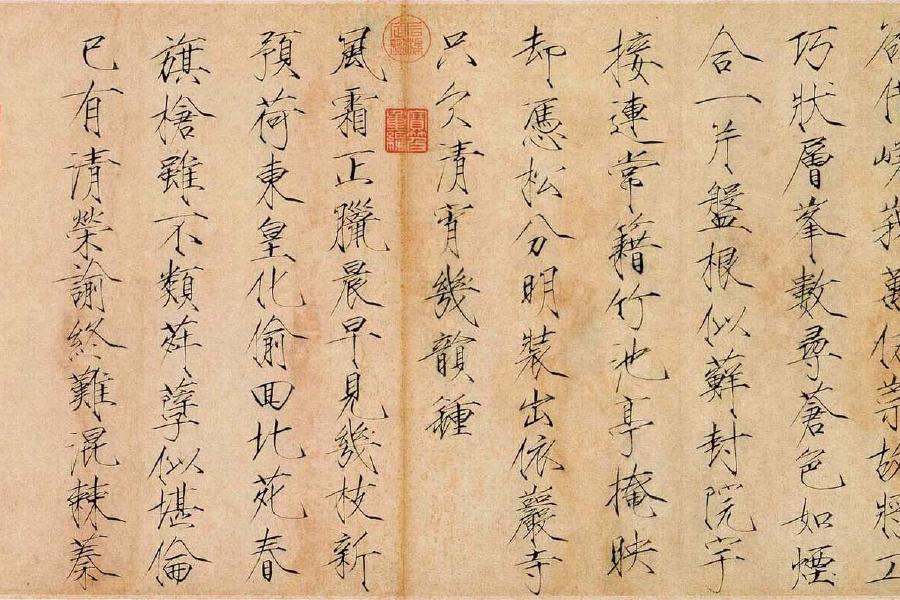 峩萬仞崇故將工
巧狀層峯數尋蒼色如煙
合一片盤根似蘚封院宇
接連常籍竹池亭掩映
却憑松分明裝出依巖寺
只欠清宵幾韻鍾
風霜正臘晨早見幾枝新
預荷東皇化偷回北苑春
旗槍雖不類荈孽似堪倫
已有清榮諭終難混棘蓁